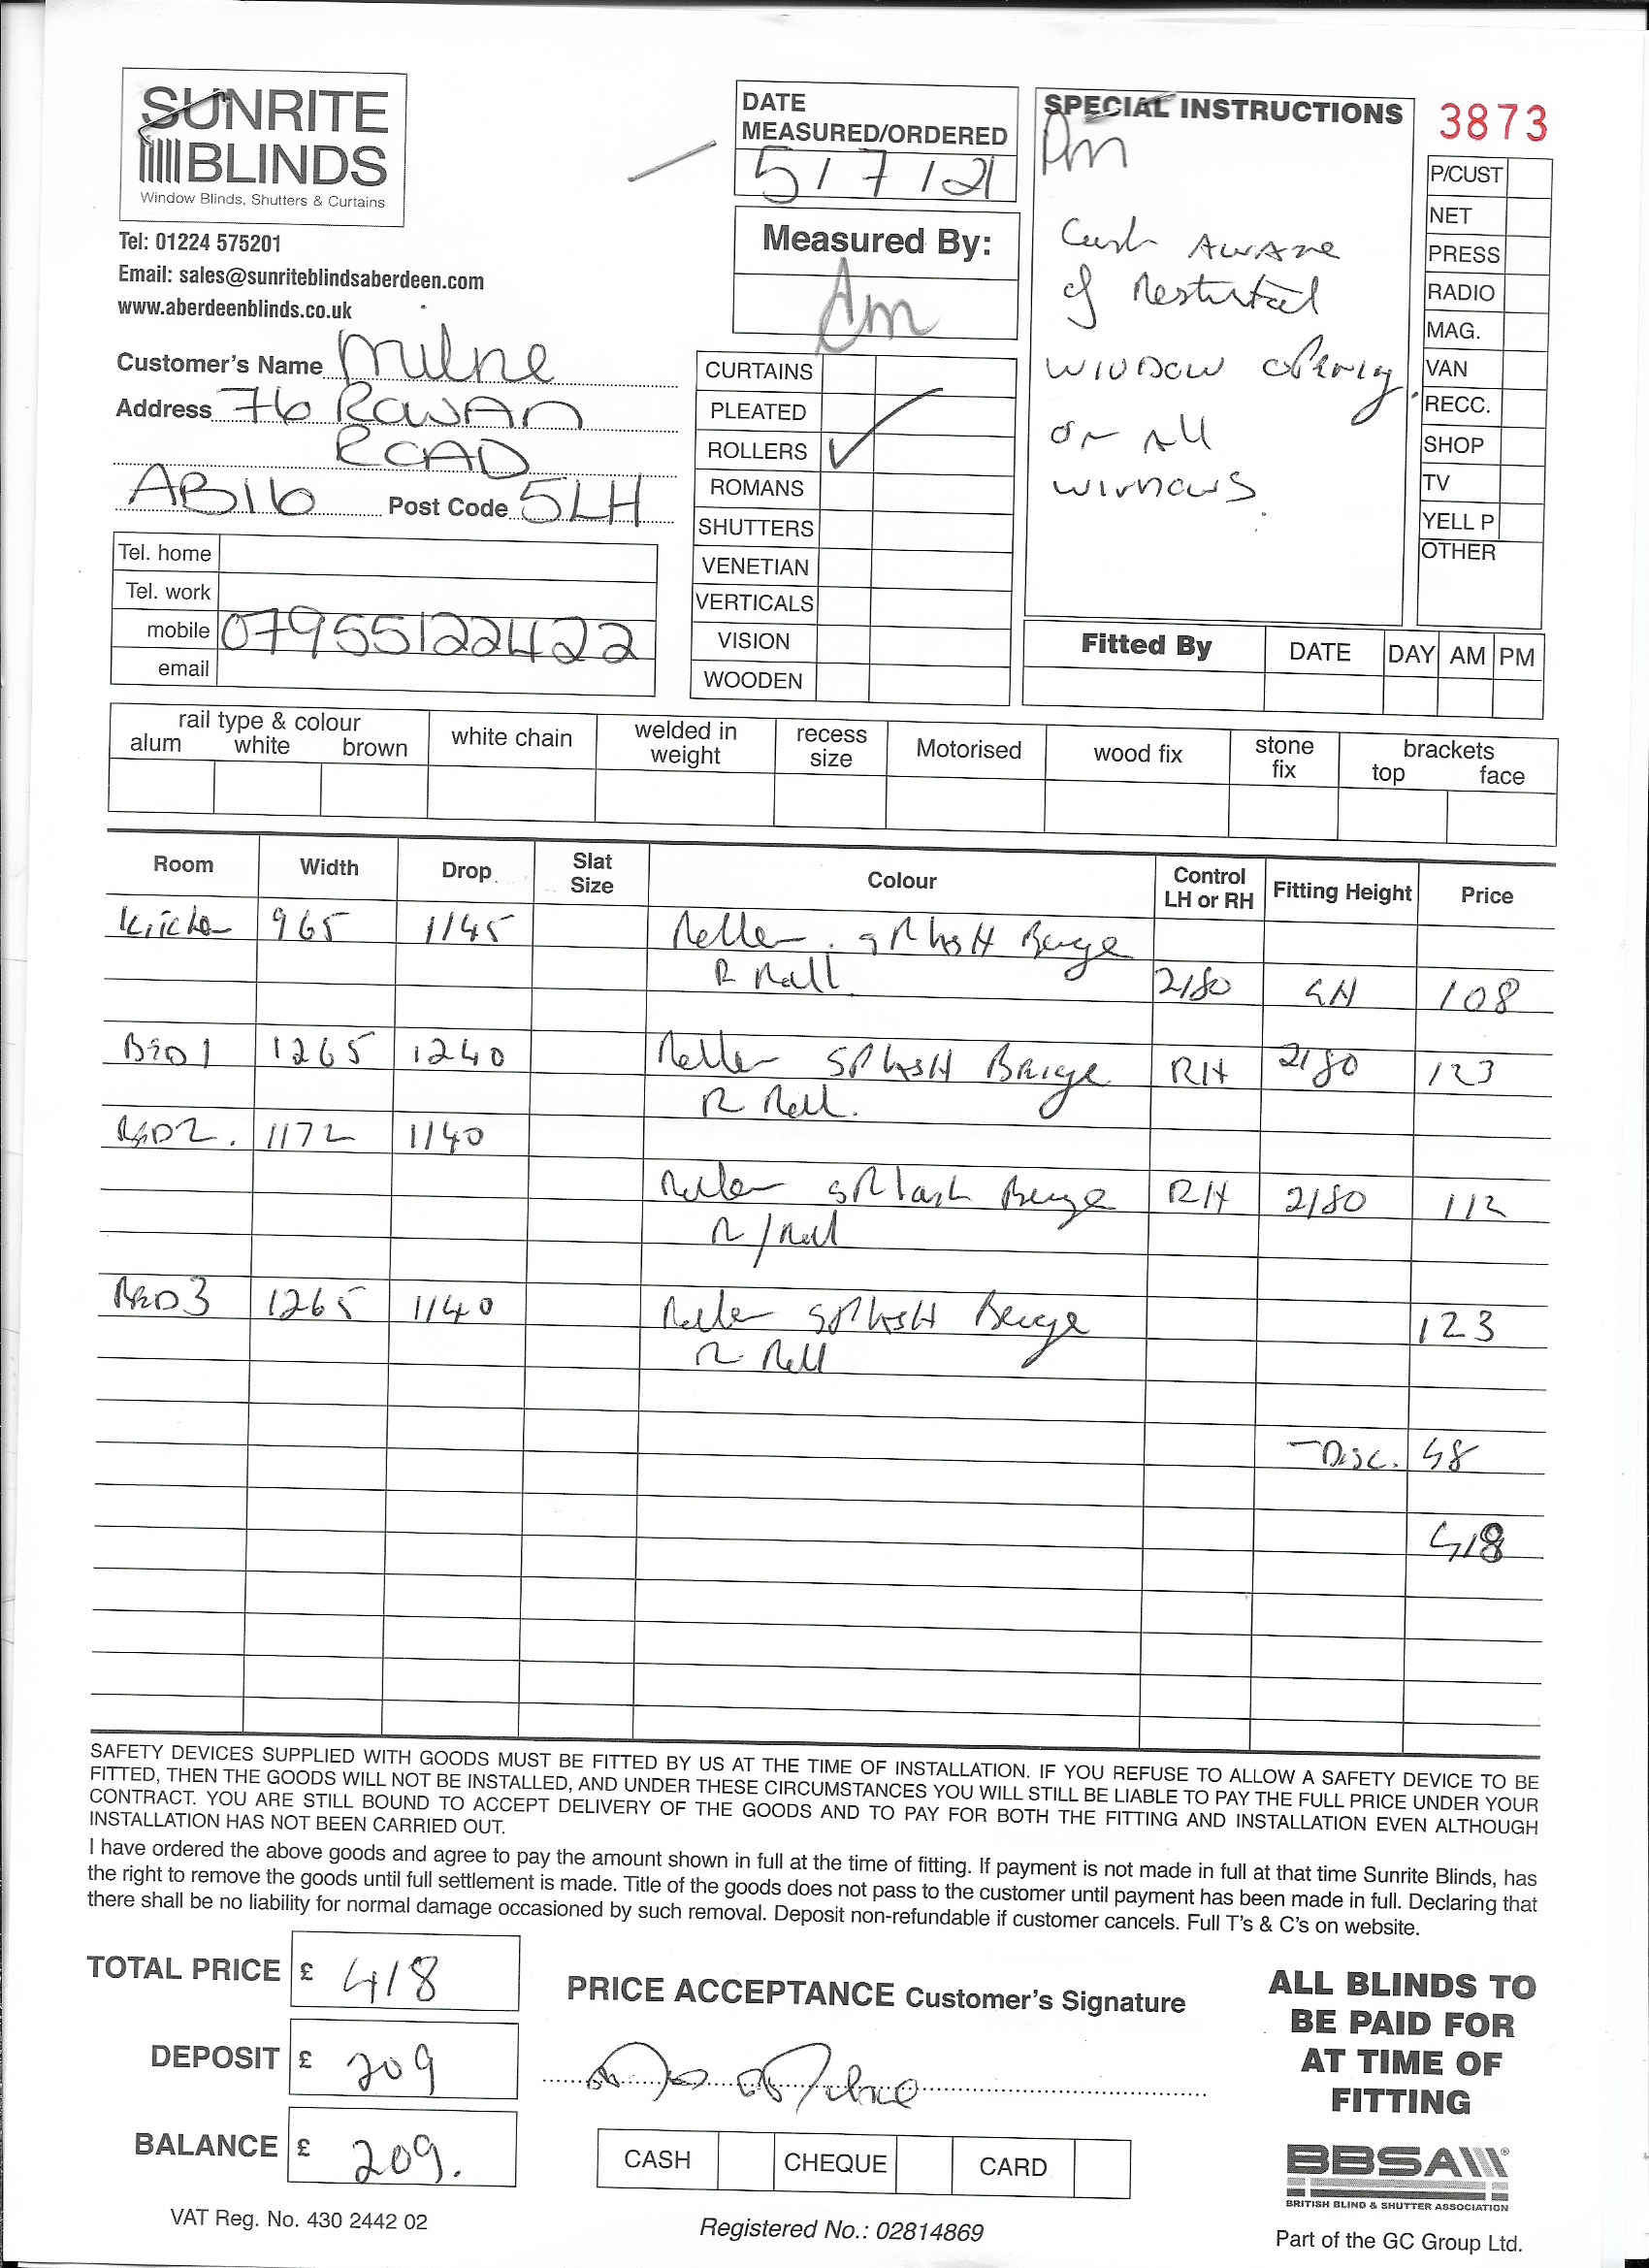 SUNRITE
BLINDS
Window Blinds, Shutters & Curtains
Tel: 01224 575201
Email: sales@sunriteblindsaberdeen.com
www.aberdeenblinds.co.uk
Customer's Name Milne
Address 76 ROWAN
ROAD
AB16 Post Code 5LH
Tel. home
Tel. work
mobile 07955122422
email
DATE
MEASURED/ORDERED
5/7/21
Measured By:
Am
CURTAINS
PLEATED
ROLLERS ✓
ROMANS
SHUTTERS
VENETIAN
VERTICALS
VISION
WOODEN
SPECIAL INSTRUCTIONS
Am
Cust AWARE
of
WINDOW opening
on All
WINDOWS.
3873
P/CUST
NET
PRESS
RADIO
MAG.
VAN
RECC.
SHOP
TV
YELL P
OTHER
Fitted By DATE DAY AM PM
rail type & colour
alum white brown
white chain
welded in
weight
recess
size
Motorised
wood fix
stone
fix
brackets
top face
Room Width Drop Slat Size Colour Control LH or RH Fitting Height Price
Kitchen 965 1145 Roller SPLASH Beige
R Roll 2180 108
BED1 1265 1240 Roller SPLASH Beige RH 2180 123
R Roll.
BED2. 1172 1140
Roller SPlash Beige RH 2180 112
R/Roll
BED3 1265 1140 Roller SPLASH Beige 123
R Roll
-Disc. 48
418
SAFETY DEVICES SUPPLIED WITH GOODS MUST BE FITTED BY US AT THE TIME OF INSTALLATION. IF YOU REFUSE TO ALLOW A SAFETY DEVICE TO BE
FITTED, THEN THE GOODS WILL NOT BE INSTALLED, AND UNDER THESE CIRCUMSTANCES YOU WILL STILL BE LIABLE TO PAY THE FULL PRICE UNDER YOUR
CONTRACT. YOU ARE STILL BOUND TO ACCEPT DELIVERY OF THE GOODS AND TO PAY FOR BOTH THE FITTING AND INSTALLATION EVEN ALTHOUGH
INSTALLATION HAS NOT BEEN CARRIED OUT.
I have ordered the above goods and agree to pay the amount shown in full at the time of fitting. If payment is not made in full at that time Sunrite Blinds, has
the right to remove the goods until full settlement is made. Title of the goods does not pass to the customer until payment has been made in full. Declaring that
there shall be no liability for normal damage occasioned by such removal. Deposit non-refundable if customer cancels. Full T's & C's on website.
TOTAL PRICE £ 418
DEPOSIT £ 209
BALANCE £ 209.
PRICE ACCEPTANCE Customer's Signature
CASH CHEQUE CARD
ALL BLINDS TO
BE PAID FOR
AT TIME OF
FITTING
BBSA
BRITISH BLIND & SHUTTER ASSOCIATION
VAT Reg. No. 430 2442 02
Registered No.: 02814869
Part of the GC Group Ltd.